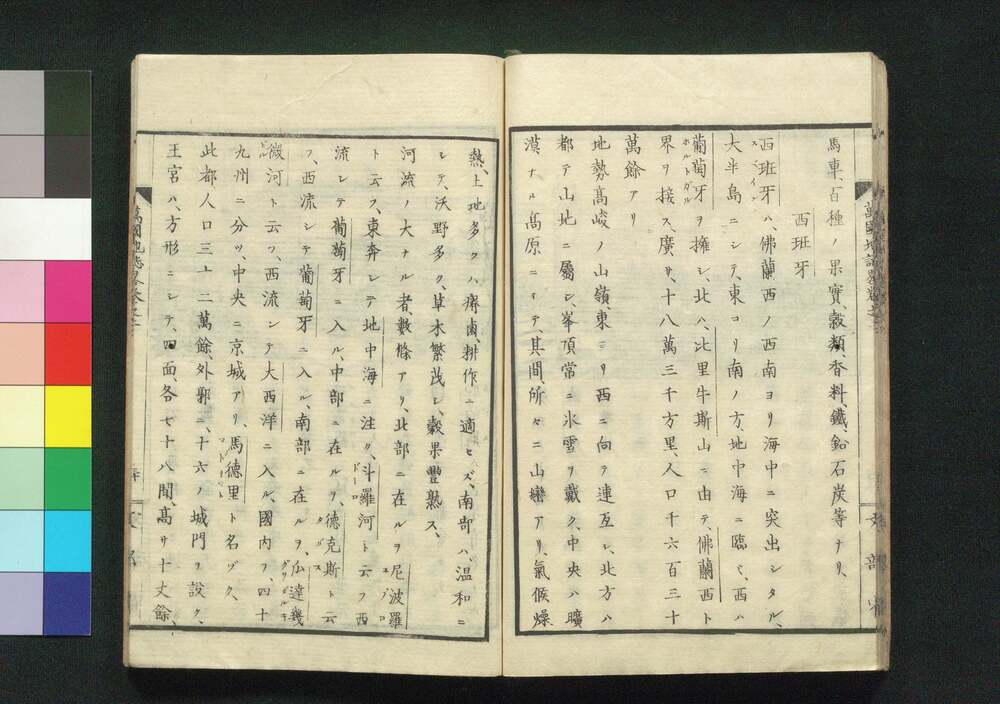 馬車、百種ノ果實、穀類、香料、鐵、鉛石炭等ナリ、
西班牙
西班牙ハ、佛蘭西ノ西南ヨリ海中ニ突出シタル、
大半島ニシテ、東ヨリ南ノ方、地中海ニ臨ミ、西ハ
葡萄牙ヲ擁シ、北ハ、比里牛斯山ニ由テ、佛蘭西ト
界ヲ接ス、廣サ、十八萬三千方里、人口千六百三十
萬餘アリ
地勢髙峻ノ山嶺東ヨリ西ニ向テ連互シ、北方ハ
都テ山地ニ屬シ、峯頂常ニ氷雪ヲ戴ク、中央ハ曠
漠ナル髙原ニシテ、其間、所々ニ山巒アリ、氣候燥
熱、土地多クハ、瘠鹵、耕作ニ適セズ、南部ハ、温和ニ
シテ、沃野多ク、草木繁茂シ、穀果豐熟ス、
河流ノ大ナル者、數條アリ、北部ニ在ルヲ尼波羅
ト云フ、東奔シテ地中海ニ注グ、斗羅河ト云フ西
流シテ葡萄牙ニ入ル、中部ニ在ルヲ、德克斯ト云
フ、西流シテ葡萄牙ニ入ル、南部ニ在ルヲ、瓜達幾
微河ト云フ、西流シテ大西洋ニ入ル、國内ヲ、四十
九州ニ分ツ、中央ニ京城アリ、馬德里ト名ヅク、
此都人口三十二萬餘、外郭ニ、十六ノ城門ヲ設ク、
王宮ハ、方形ニシテ、四面、各七十八間、髙サ十丈餘、